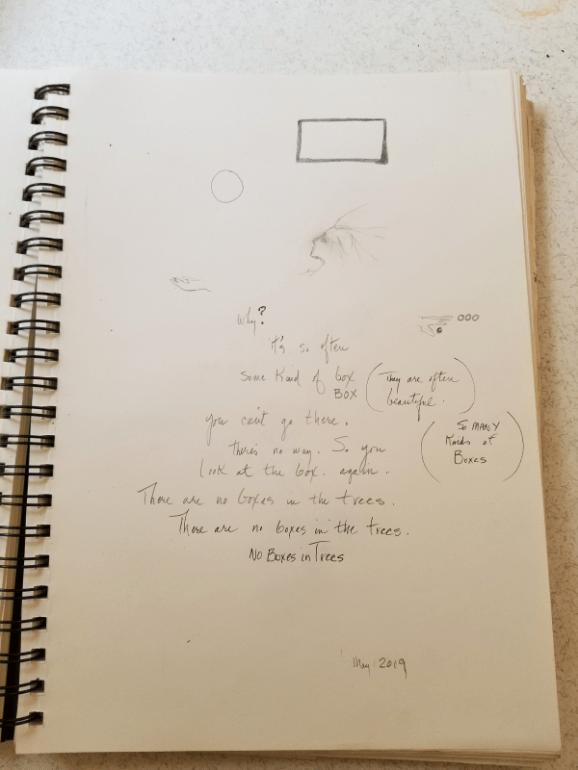 why?
It's so often
some kind of box
BOX
(They are often
beautiful.)
you can't go there.
there's no way. So you
look at the box. again.
(So MANY
Kinds of
Boxes)
There are no boxes in the trees.
There are no boxes in the trees.
No Boxes in Trees
May 2019